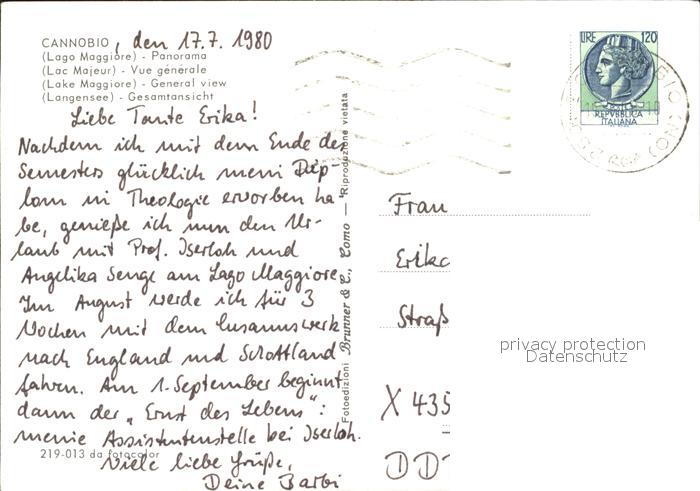 CANNOBIO, den 17.7. 1980
(Lago Maggiore) - Panorama
(Lac Majeur) - Vue générale
(Lake Maggiore) - General view
(Langensee) - Gesamtansicht
Liebe Tante Erika!
Nachdem ich mit dem Ende des
Semesters glücklich mein Dip-
lom in Theologie erworben ha
be, genieße ich nun den Ur-
laub mit Prof. Iserloh und
Angelika Senge am Lago Maggiore.
Im August werde ich für 3
Wochen mit dem Cusanuswerk
nach England und Schottland
fahren. Am 1. September beginnt
dann der „Ernst des Lebens":
meine Assistentenstelle bei Iserloh.
Viele liebe Grüße,
Deine Barbi
219-013 da fotocolor
Fotoedizioni Brunner & C., Como — Riproduzione vietata
LIRE 120
REPVBBLICA
ITALIANA
Frau
Erika
Straß
X 435
DD
privacy protection
Datenschutz